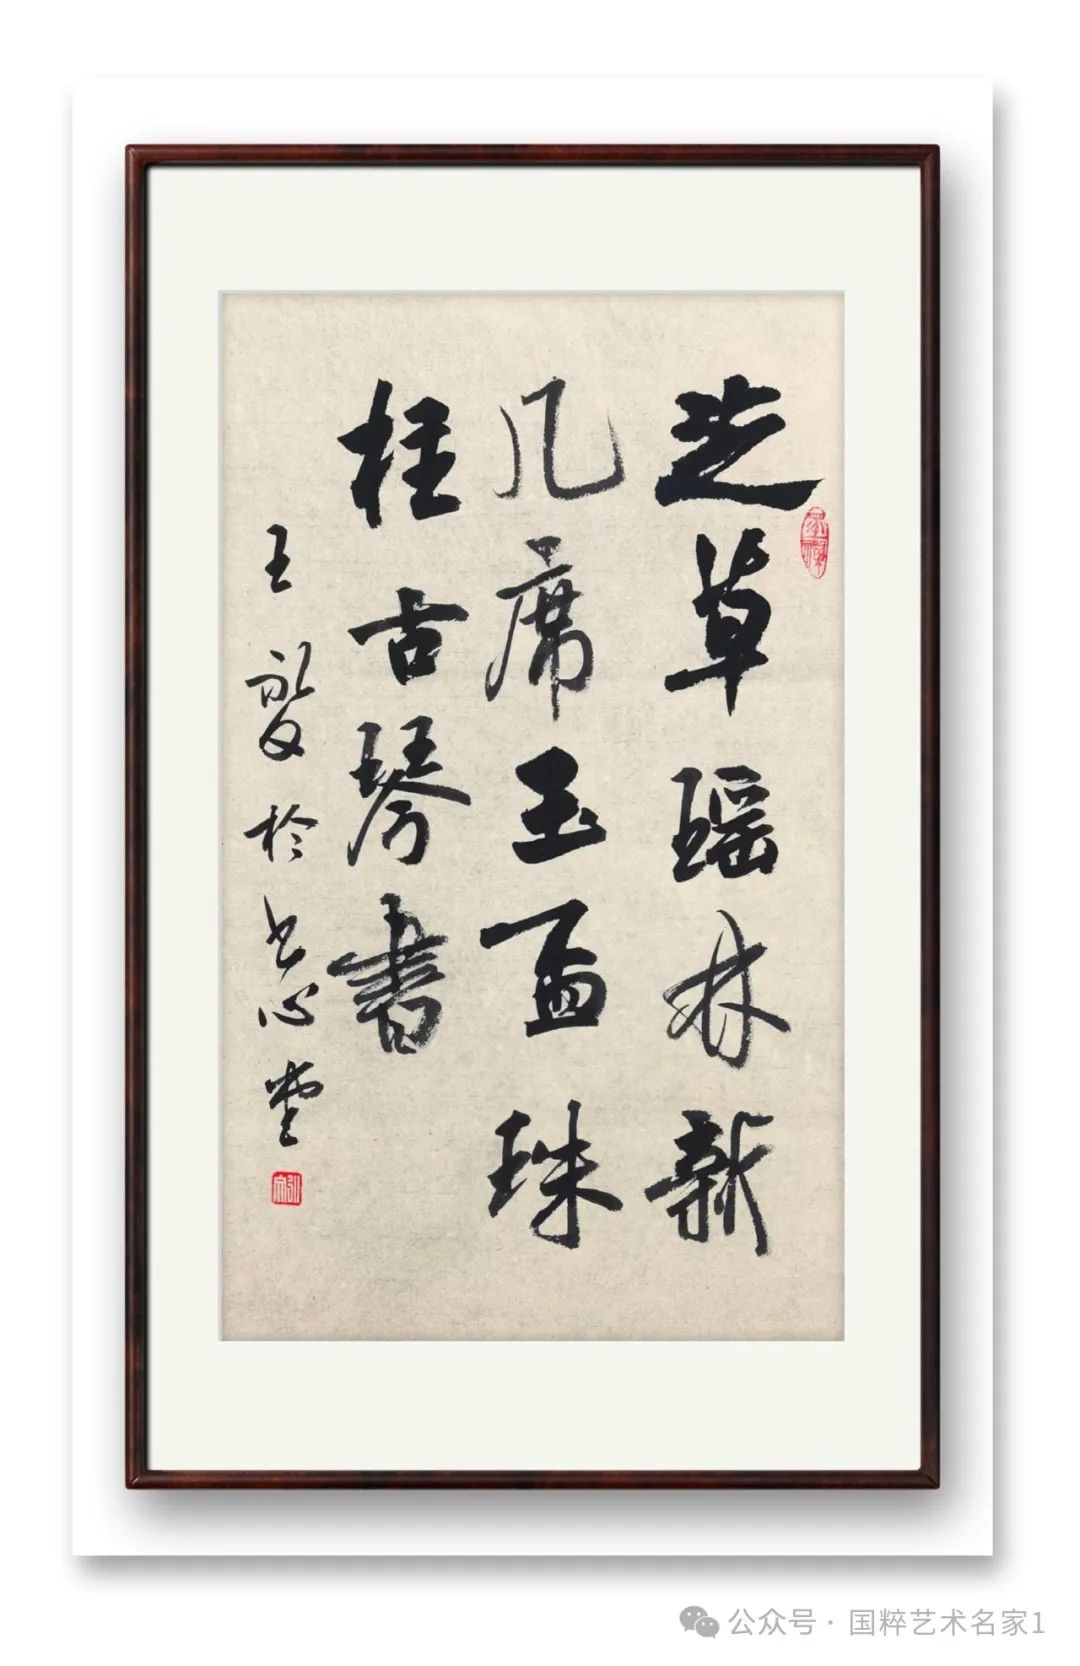 芝草瑶林新
几席玉盃珠
柱古琴書
王
於
心堂
公众号·国粹艺术名家1